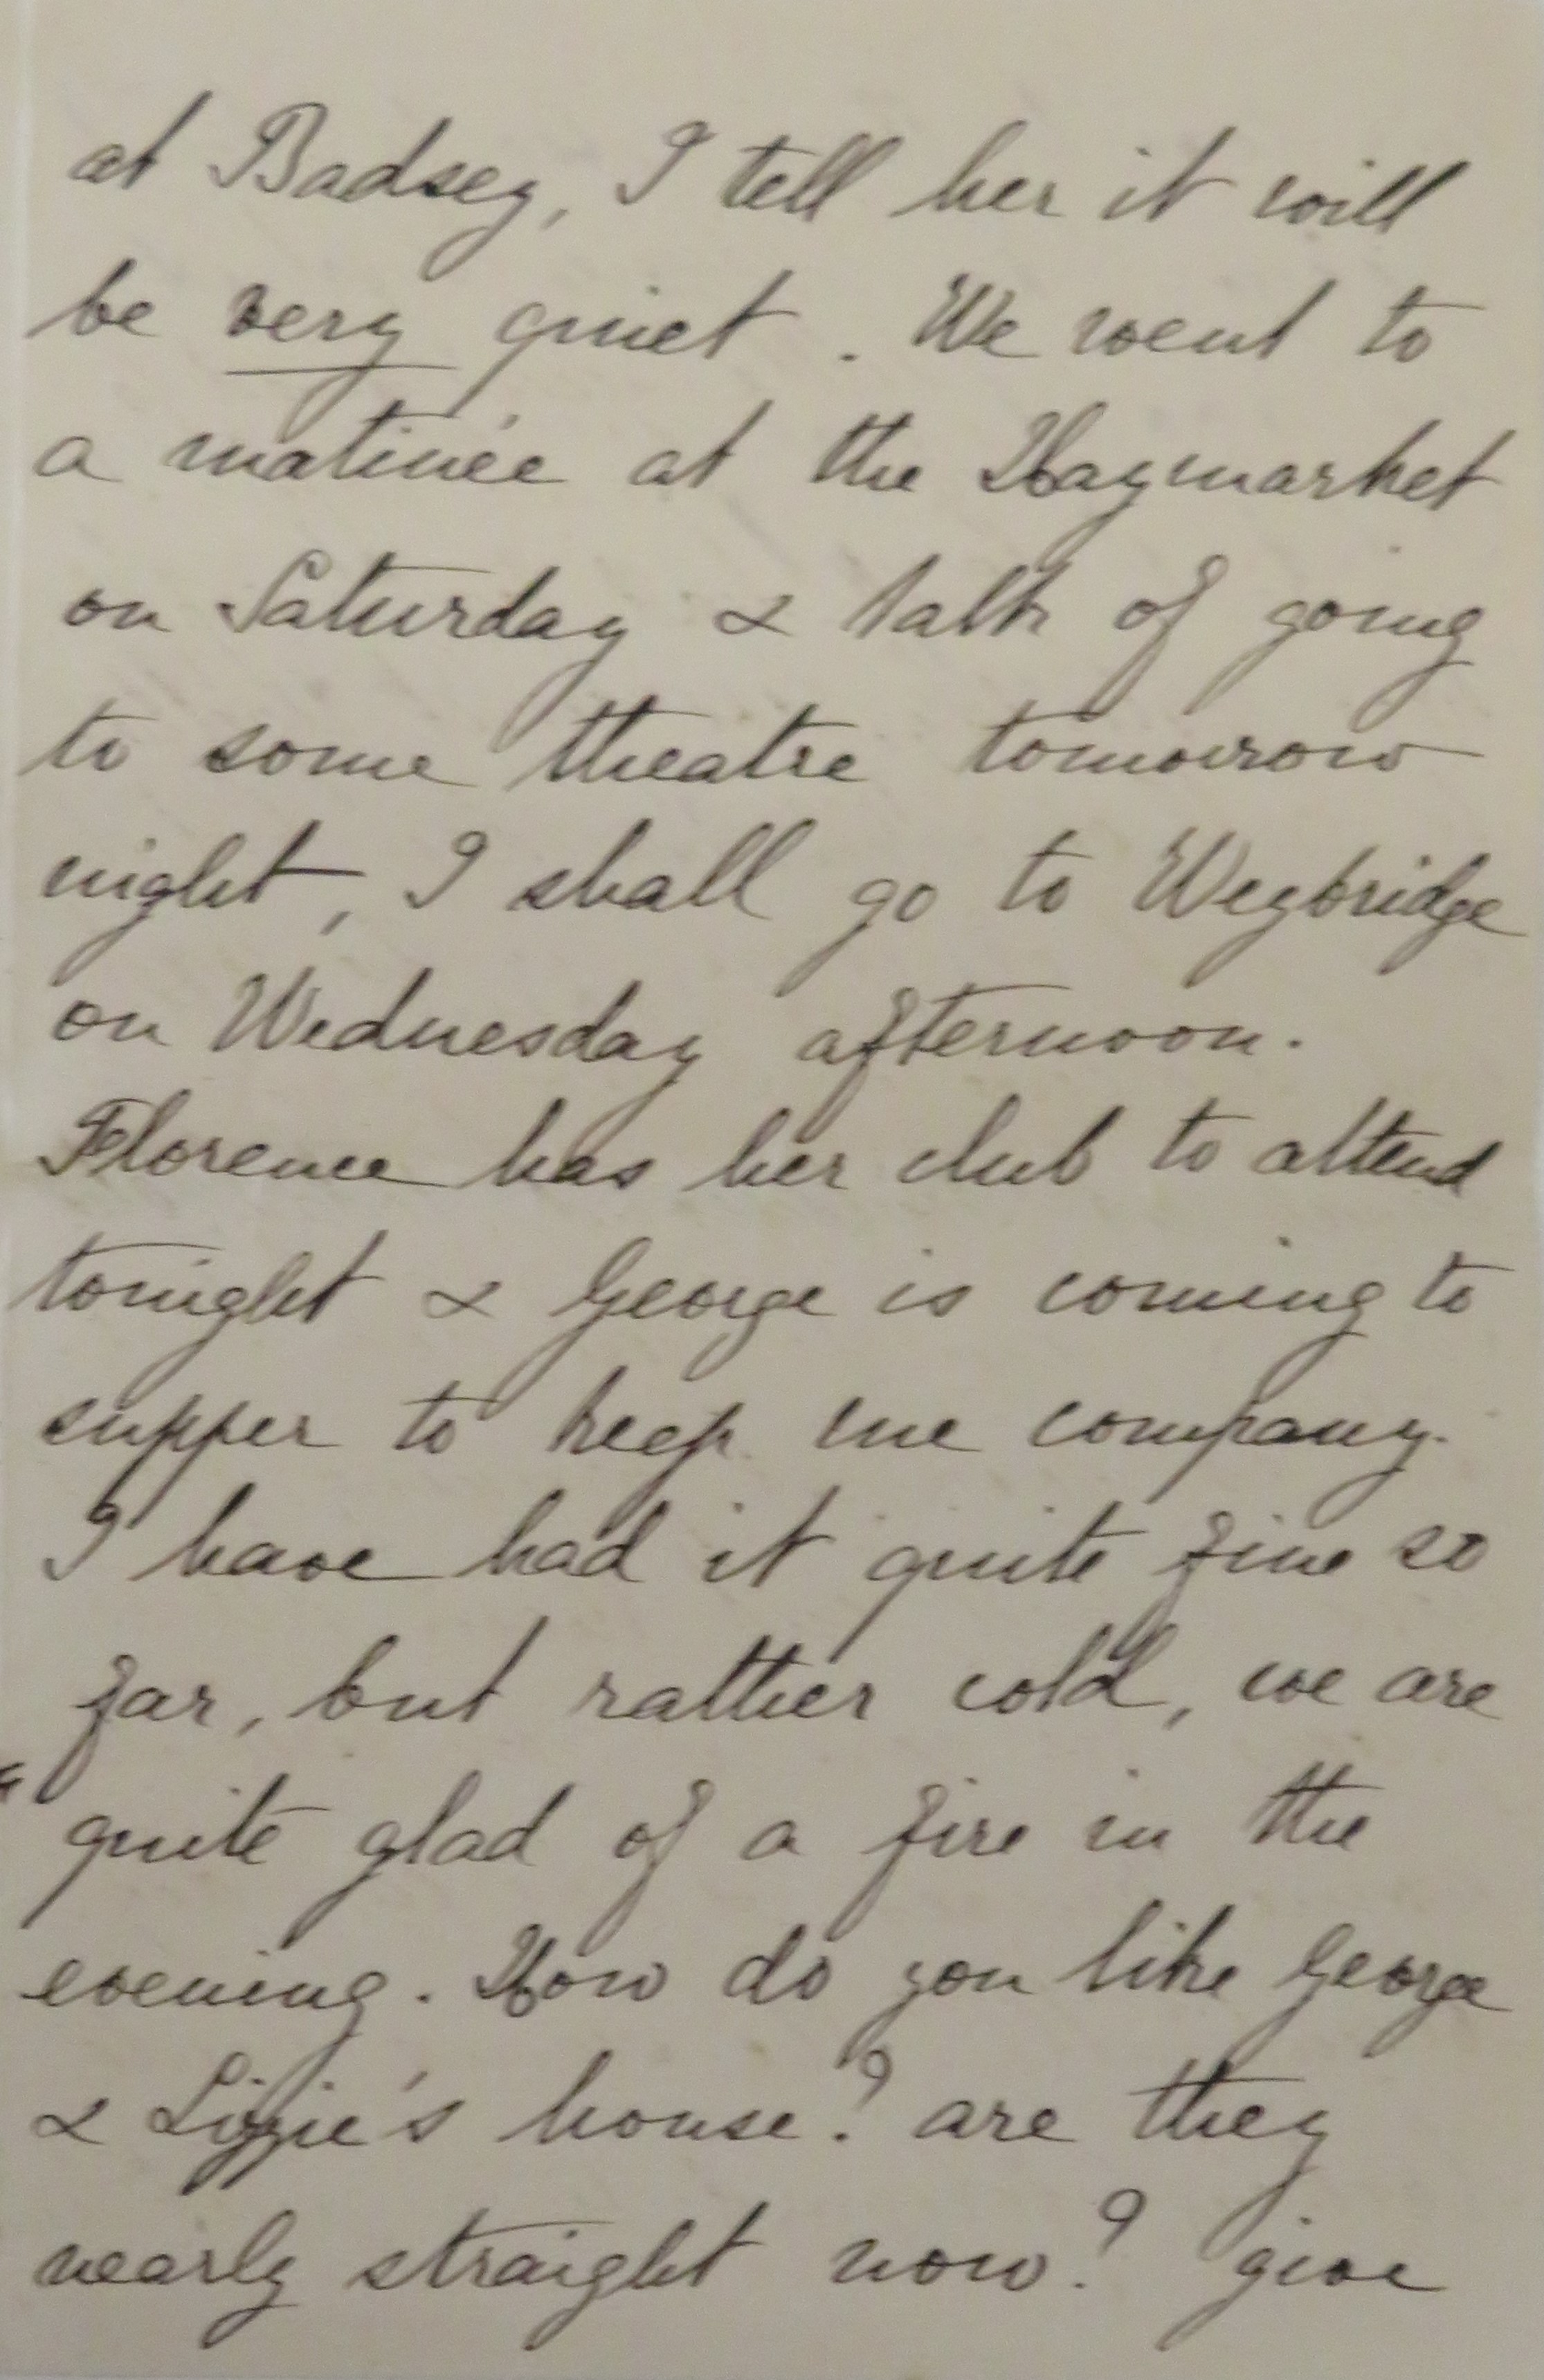 at Badsey, I tell her it will
be very quiet. We went to
a matinée at the Haymarket
on Saturday & talk of going
to some theatre tomorrow
night, I shall go to Weybridge
on Wednesday afternoon.
Florence has her club to attend
tonight & George is coming to
supper to keep me company.
I have had it quite fine so
far, but rather cold, we are
quite glad of a fire in the
evening. How do you like George
& Lizzie's house? are they
nearly straight now? give